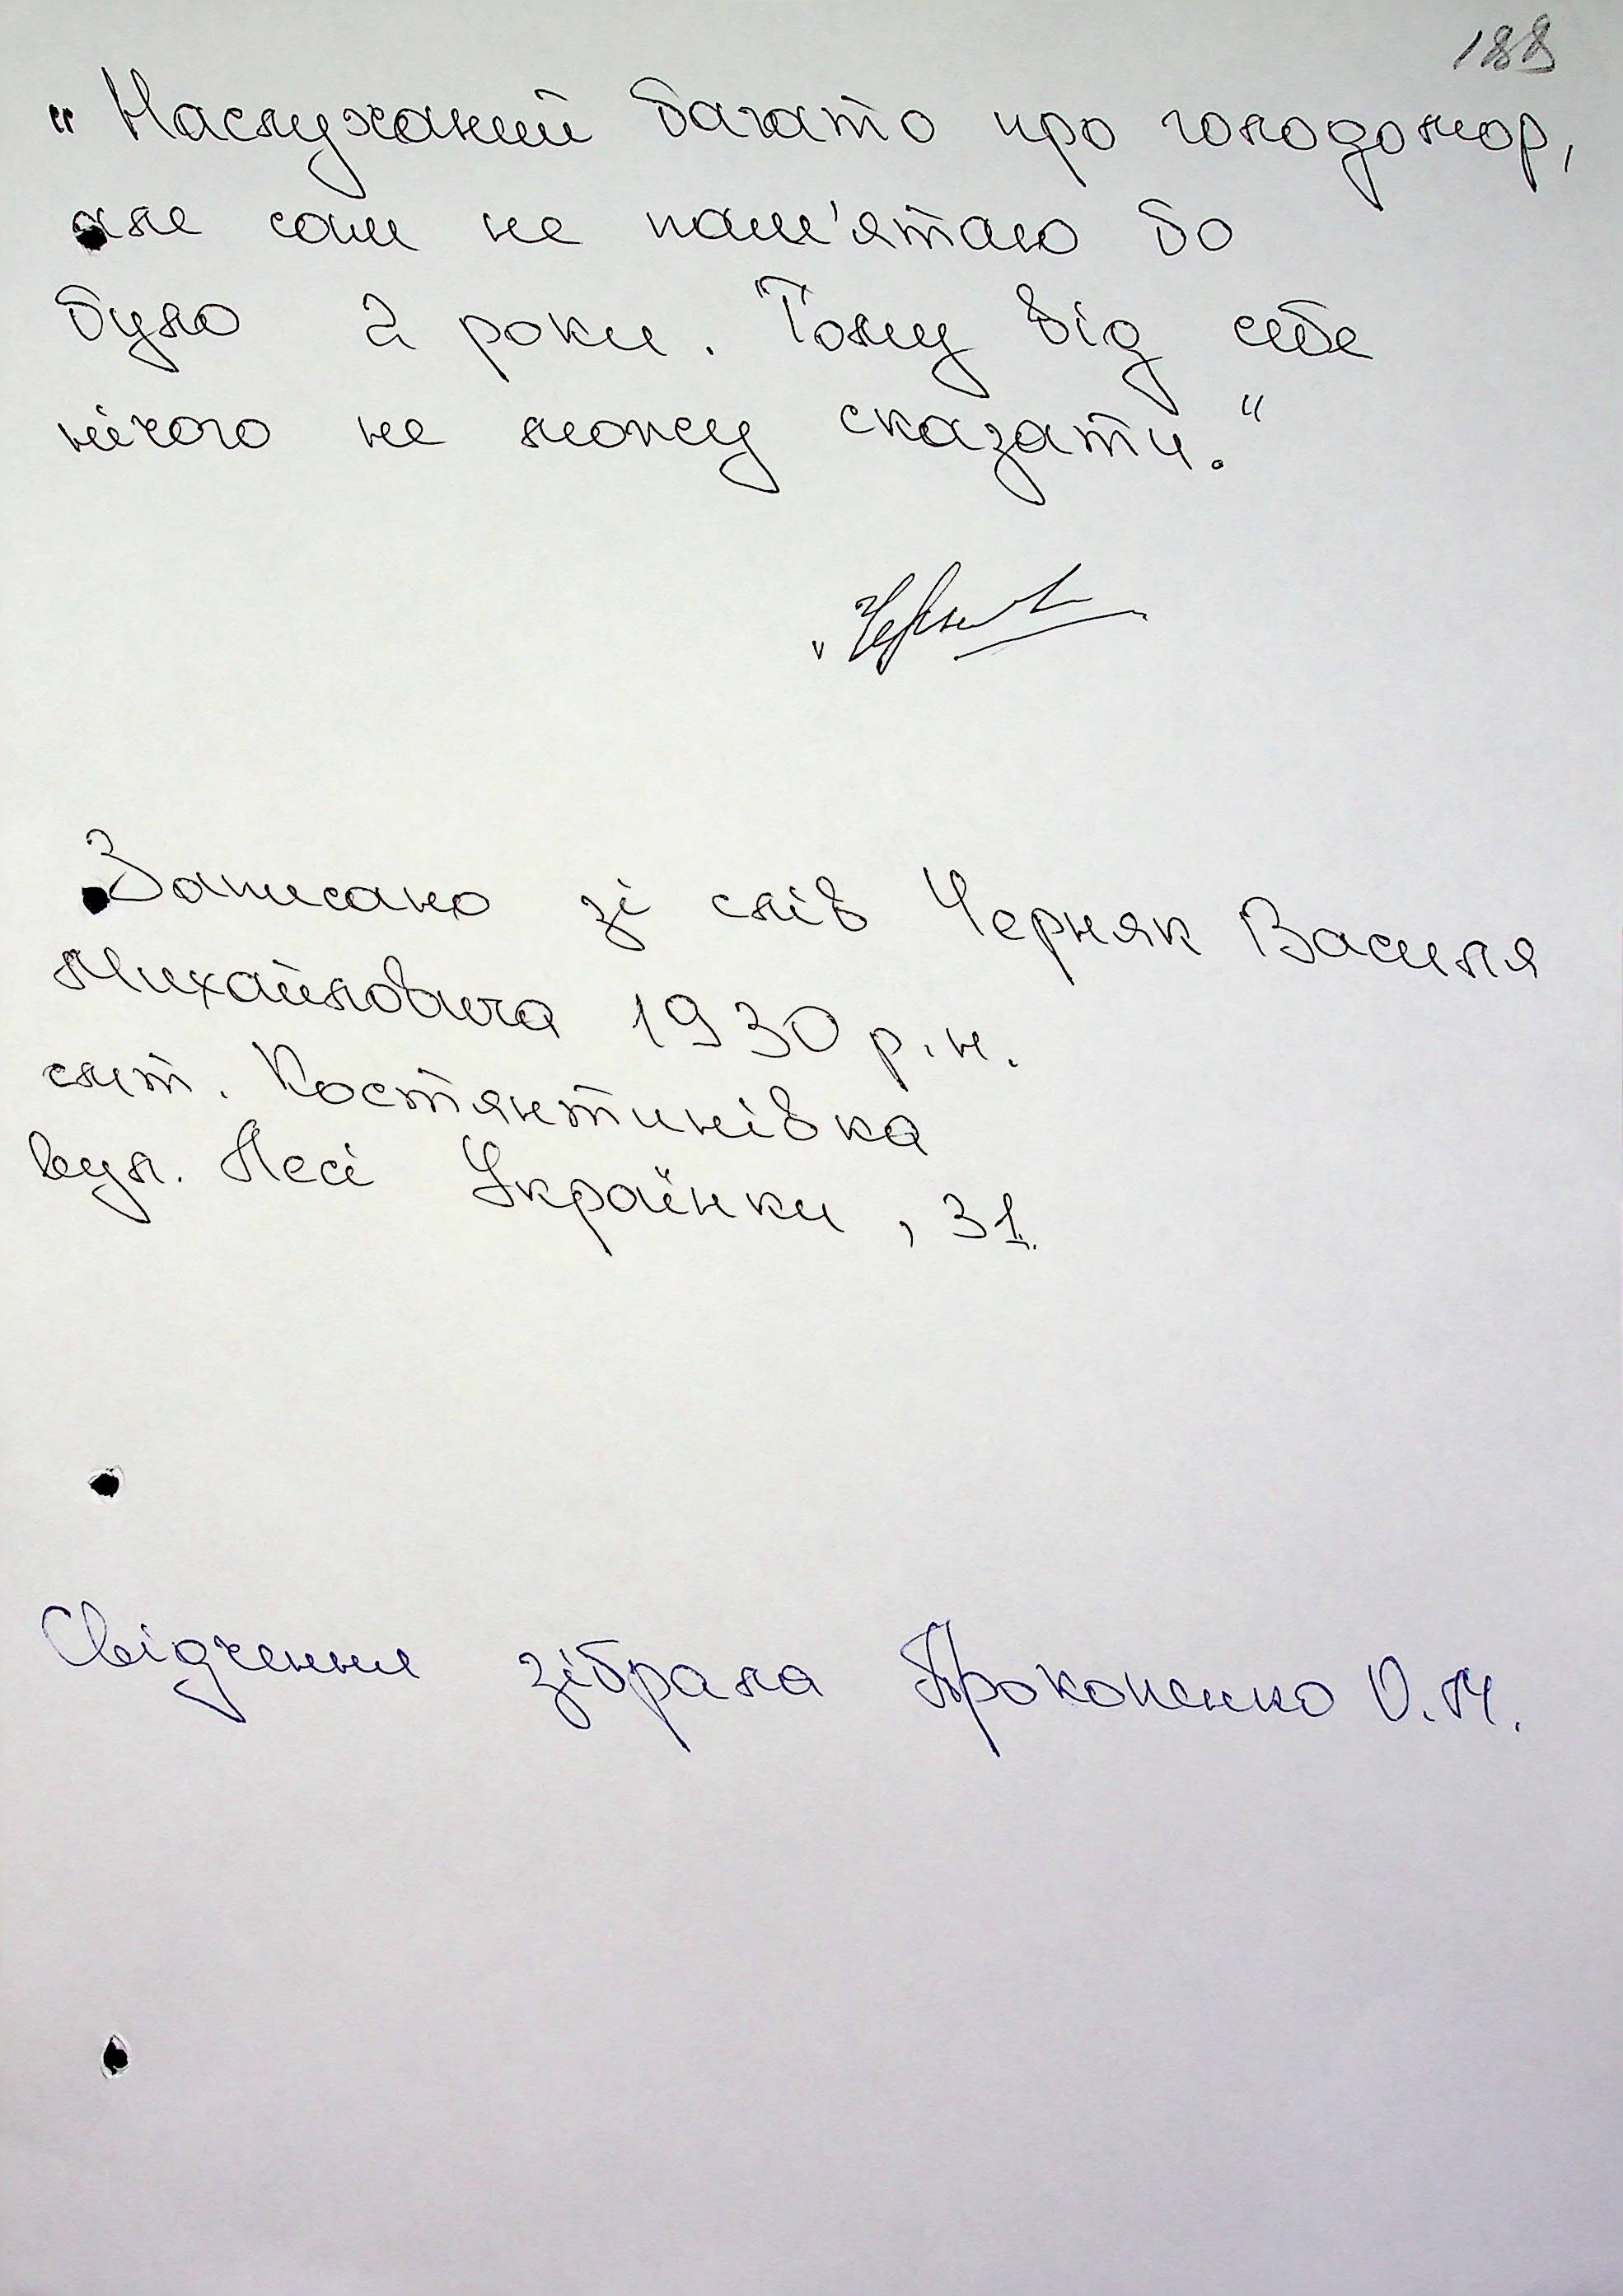 188
"Наслуханий багато про голодомор,
але сам не пам'ятаю бо
було 2 роки. Тому від себе
нічого не можу сказати."
Записано зі слів Черняк Василя
Михайловича 1930 р.н.
смт. Костянтинівка
вул. Лесі Українки, 31.
Свідчення зібрала Прокопенко О.М.